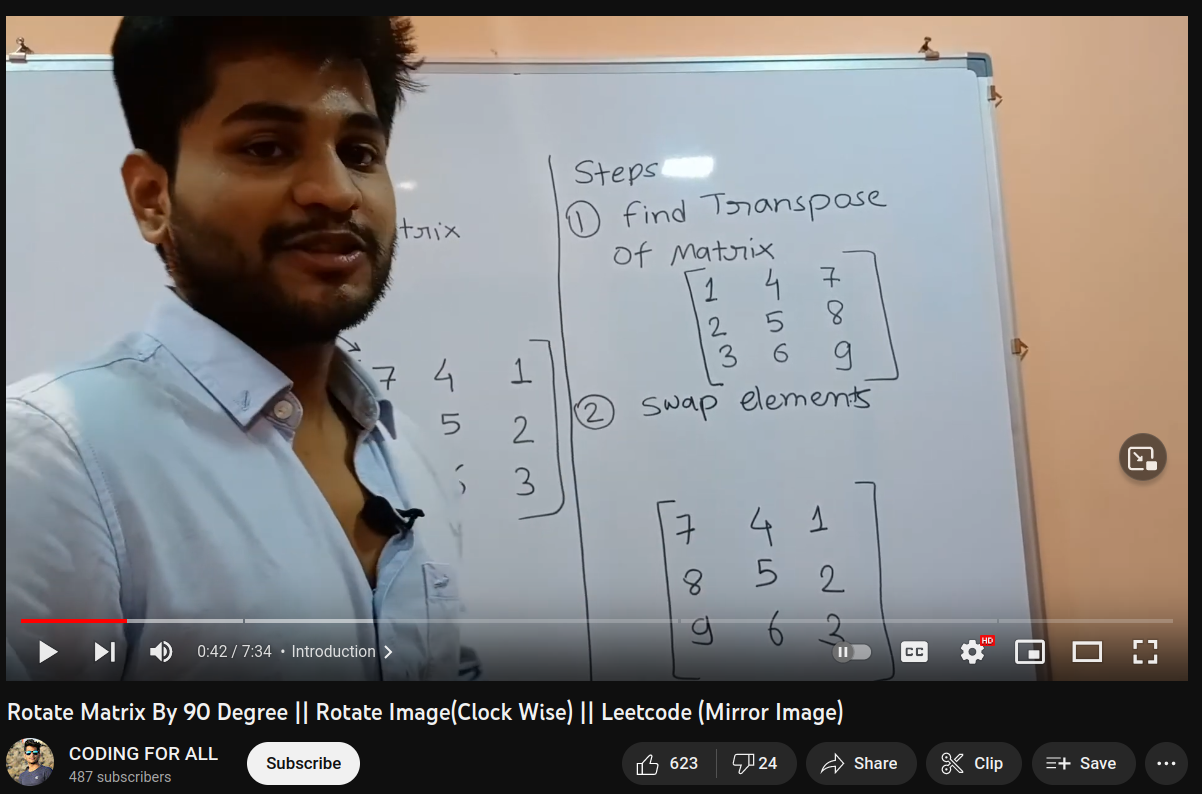 trix
7 4 1
5 2
3
Steps
① find Transpose
Of Matrix
1 4 7
2 5 8
3 6 9
② swap elements
7 4 1
8 5 2
9 6 3
0:42 / 7:34 • Introduction
CC
HD
Rotate Matrix By 90 Degree || Rotate Image(Clock Wise) || Leetcode (Mirror Image)
CODING FOR ALL
487 subscribers
Subscribe
623
24
Share
Clip
Save